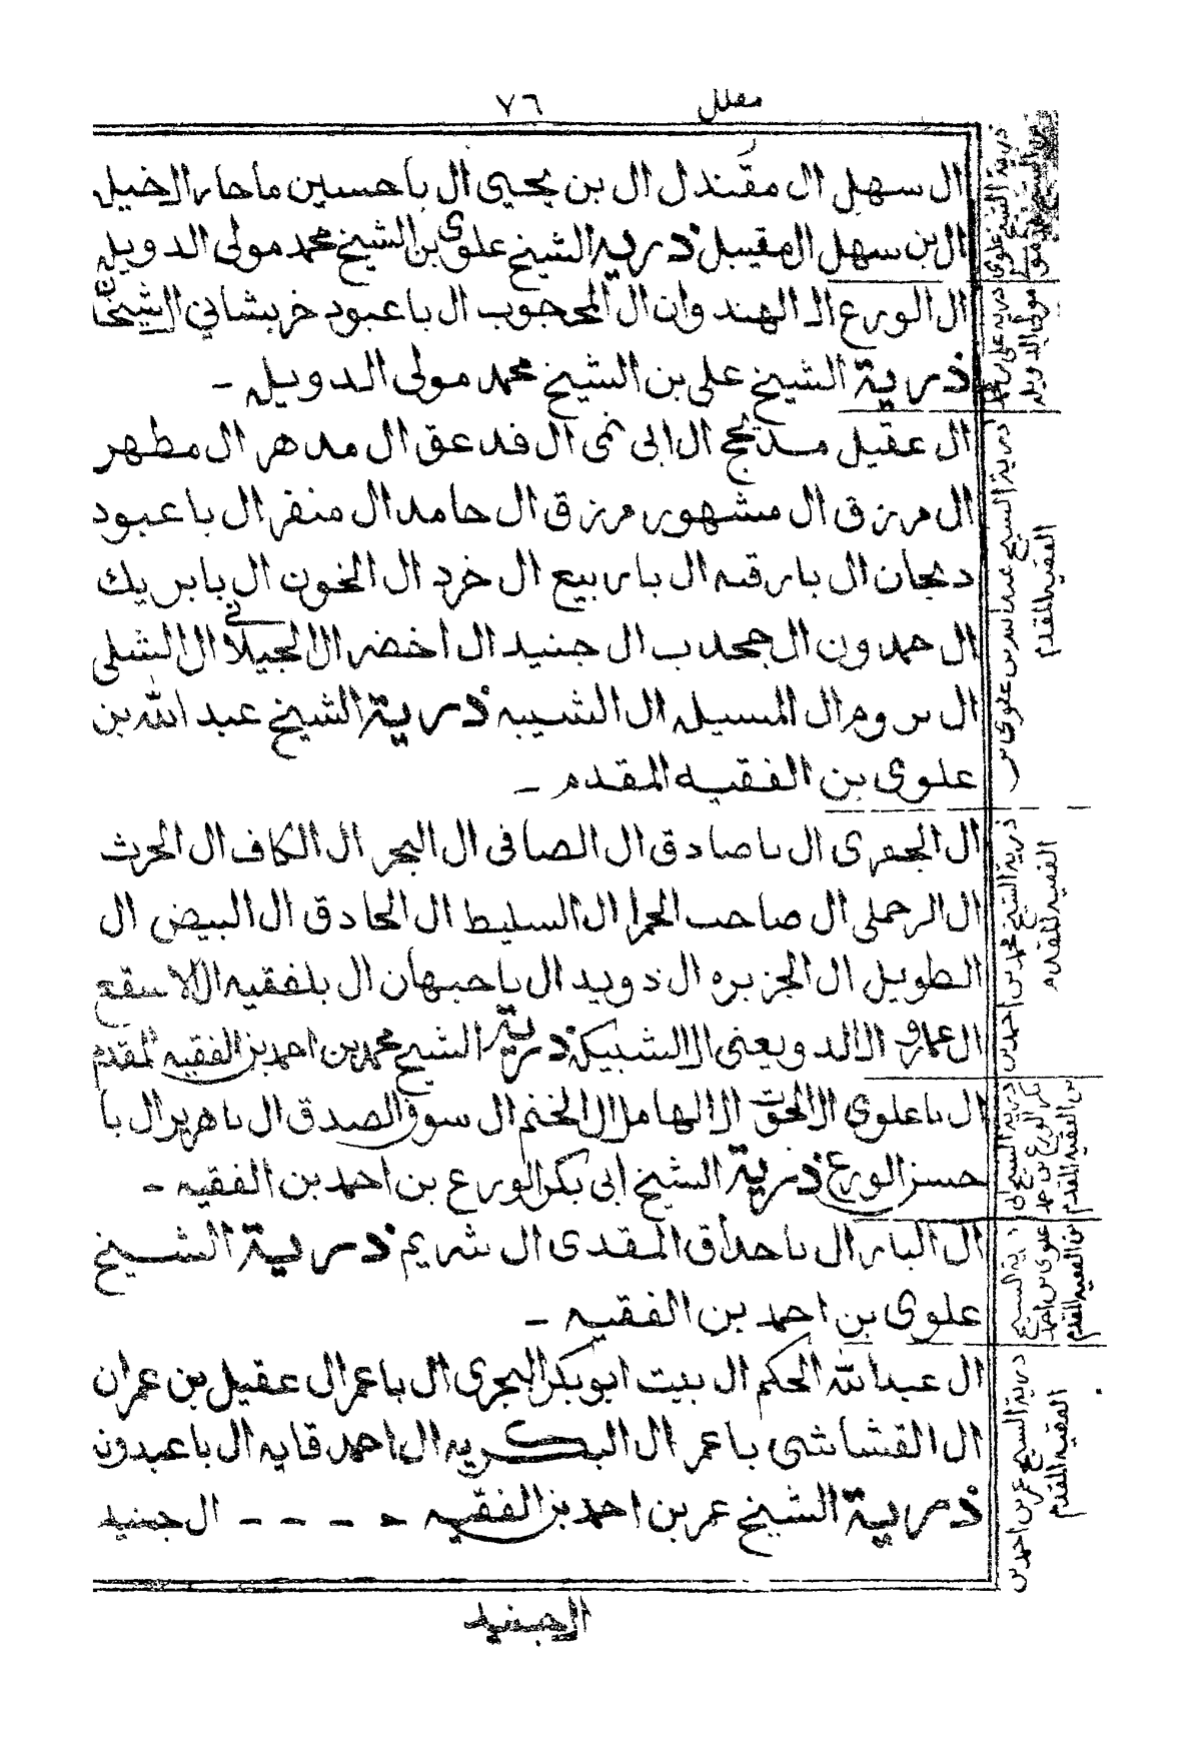 ٧٦
ال سهل ال مقندل ال بن يحيى ال باحسين ال الخيله
ال بن سهل ال مقيبل ذرية الشيخ علوى بن الشيخ محمد مولى الدويله
ال الورع ال الهندوان ال المحجوب ال باعبود خربشاني
ذرية الشيخ على بن الشيخ محمد مولى الدويله -
ال عقيل مديحج ال ابى نمى ال فدعق ال مدهر ال مطهر
ال مرزق ال مشهور مرزق ال حامد ال منفر ال باعبود
دبجان ال بارقبه ال باربيع ال خرد ال الخون ال بابريك
ال حمدون ال جحدب ال جنيد ال اخضر ال الجيلاني ال الشلى
ال بروم ال المسيله ال الشيبه ذرية الشيخ عبد الله بن
علوى بن الفقيه المقدم -
ال الجفرى ال باصادق ال الصافى ال البحر ال الكاف ال الحرث
ال الرحملى ال صاحب الحمرا ال السليط ال الحادق ال البيض ال
الطويل ال الجزيره ال ذويد ال باحبهان ال بلفقيه ال الاسقع
ال عمارو ال الدويعنى ال الشبيكة ذرية الشيخ محمد بن احمد بن الفقيه المقدم
ال باعلوى ال ال الهامل ال الخنم ال سوق الصدق ال باهرير ال با
حسن الورع ذرية الشيخ ابى بكر الورع بن احمد بن الفقيه -
ال البار ال باحذاق المقدى ال شريم ذرية الشيخ
علوى بن احمد بن الفقيه -
ال عبدالله الحكم ال بيت ابوبكر البحرى ال باعمر ال عقيل بن عمران
ال القشاشى باعمر ال البكريه ال احمد قايه ال باعبدون
ذرية الشيخ عمر بن احمد بن الفقيه - - - - ال جنيد
الجنيد
ذرية الشيخ علوى
بن الشيخ محمد مولى
ذرية على بن محمد
مولى الدويله
ذرية الشيخ عبدالله بن علوى بن
الفقيه المقدم
ذرية الشيخ محمد بن احمد بن
الفقيه المقدم
ذرية الشيخ ابى
بكر الورع بن احمد
بن الفقيه المقدم
ذرية الشيخ
علوى بن احمد
بن الفقيه المقدم
ذرية الشيخ عمر بن احمد بن
الفقيه المقدم